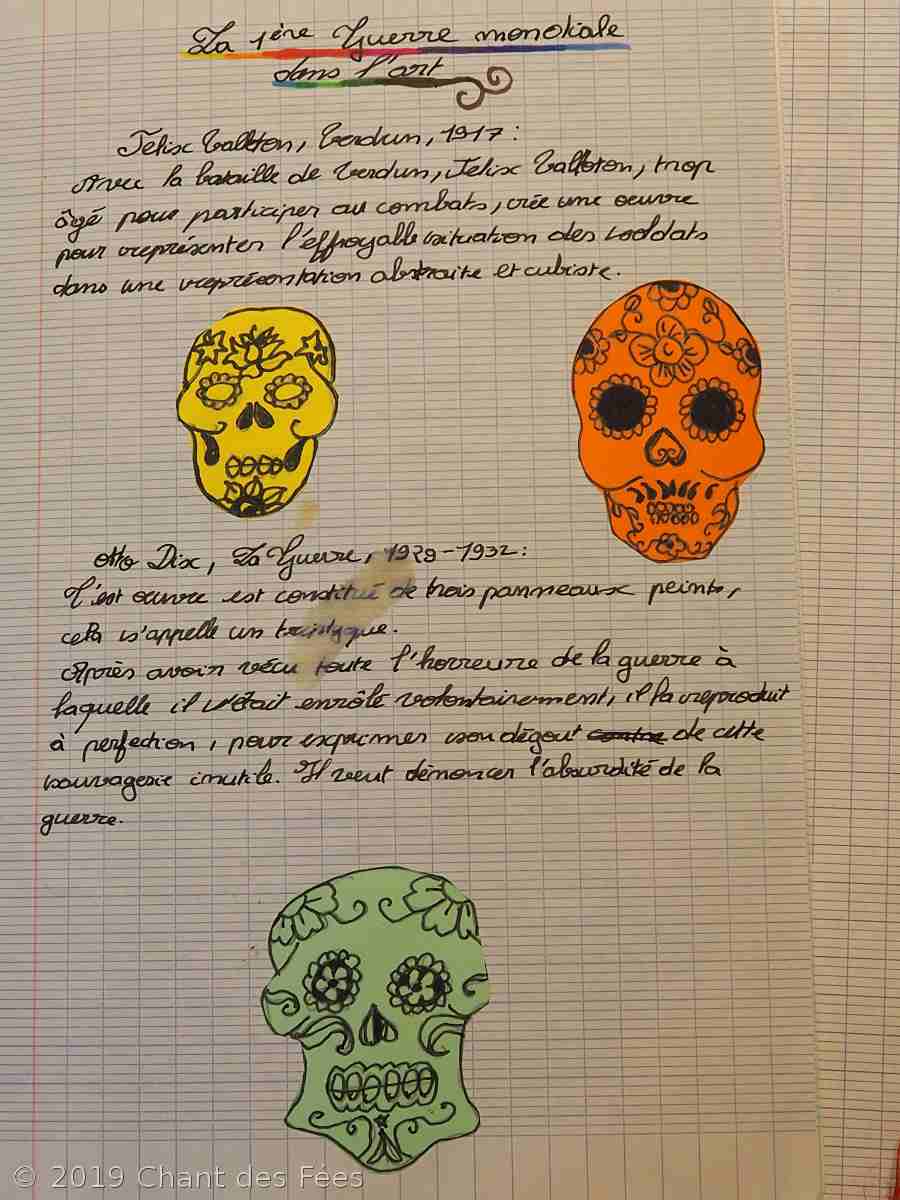 La 1ère Guerre mondiale
dans l'art
Félix Valloton, Verdun, 1917 :
Avec la bataille de Verdun, Félix Valloton, trop
âgé pour participer au combats, crée une oeuvre
pour représenter l'effroyable situation des soldats
dans une représentation abstraite et cubiste.
Otto Dix, La Guerre, 1929-1932 :
C'est oeuvre est constitué de trois panneaux peints,
cela s'appelle un
Après avoir vécu toute l'horreure de la guerre à
laquelle il s'était enrôlé volontairement, il la reproduit
à perfection, pour exprimer son dégout contre de cette
sauvagerie inutile. Il veut dénoncer l'absurdité de la
guerre.
© 2019 Chant des Fées